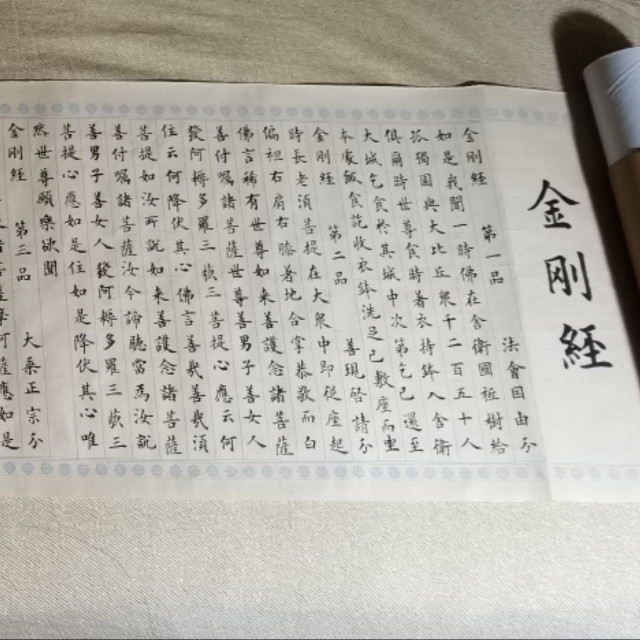 金剛經
金剛經 第一品 法會因由分
如是我聞一時佛在舍衛國祗樹給
孤獨園與大比丘眾千二百五十人
俱爾時世尊食時著衣持鉢入舍衛
大城乞食於其城中次第乞已還至
本處飯食訖收衣鉢洗足已敷座而坐
金剛經 第二品 善現啓請分
時長老須菩提在大眾中即從座起
偏袒右肩右膝著地合掌恭敬而白
佛言稀有世尊如來善護念諸菩薩
善付囑諸菩薩世尊善男子善女人
發阿耨多羅三藐三菩提心應云何
住云何降伏其心佛言善哉善哉須
菩提如汝所說如來善護念諸菩薩
善付囑諸菩薩汝今諦聽當為汝說
善男子善女人發阿耨多羅三藐三
菩提心應如是住如是降伏其心唯
然世尊願樂欲聞
金剛經 第三品 大乘正宗分
訶薩應如是